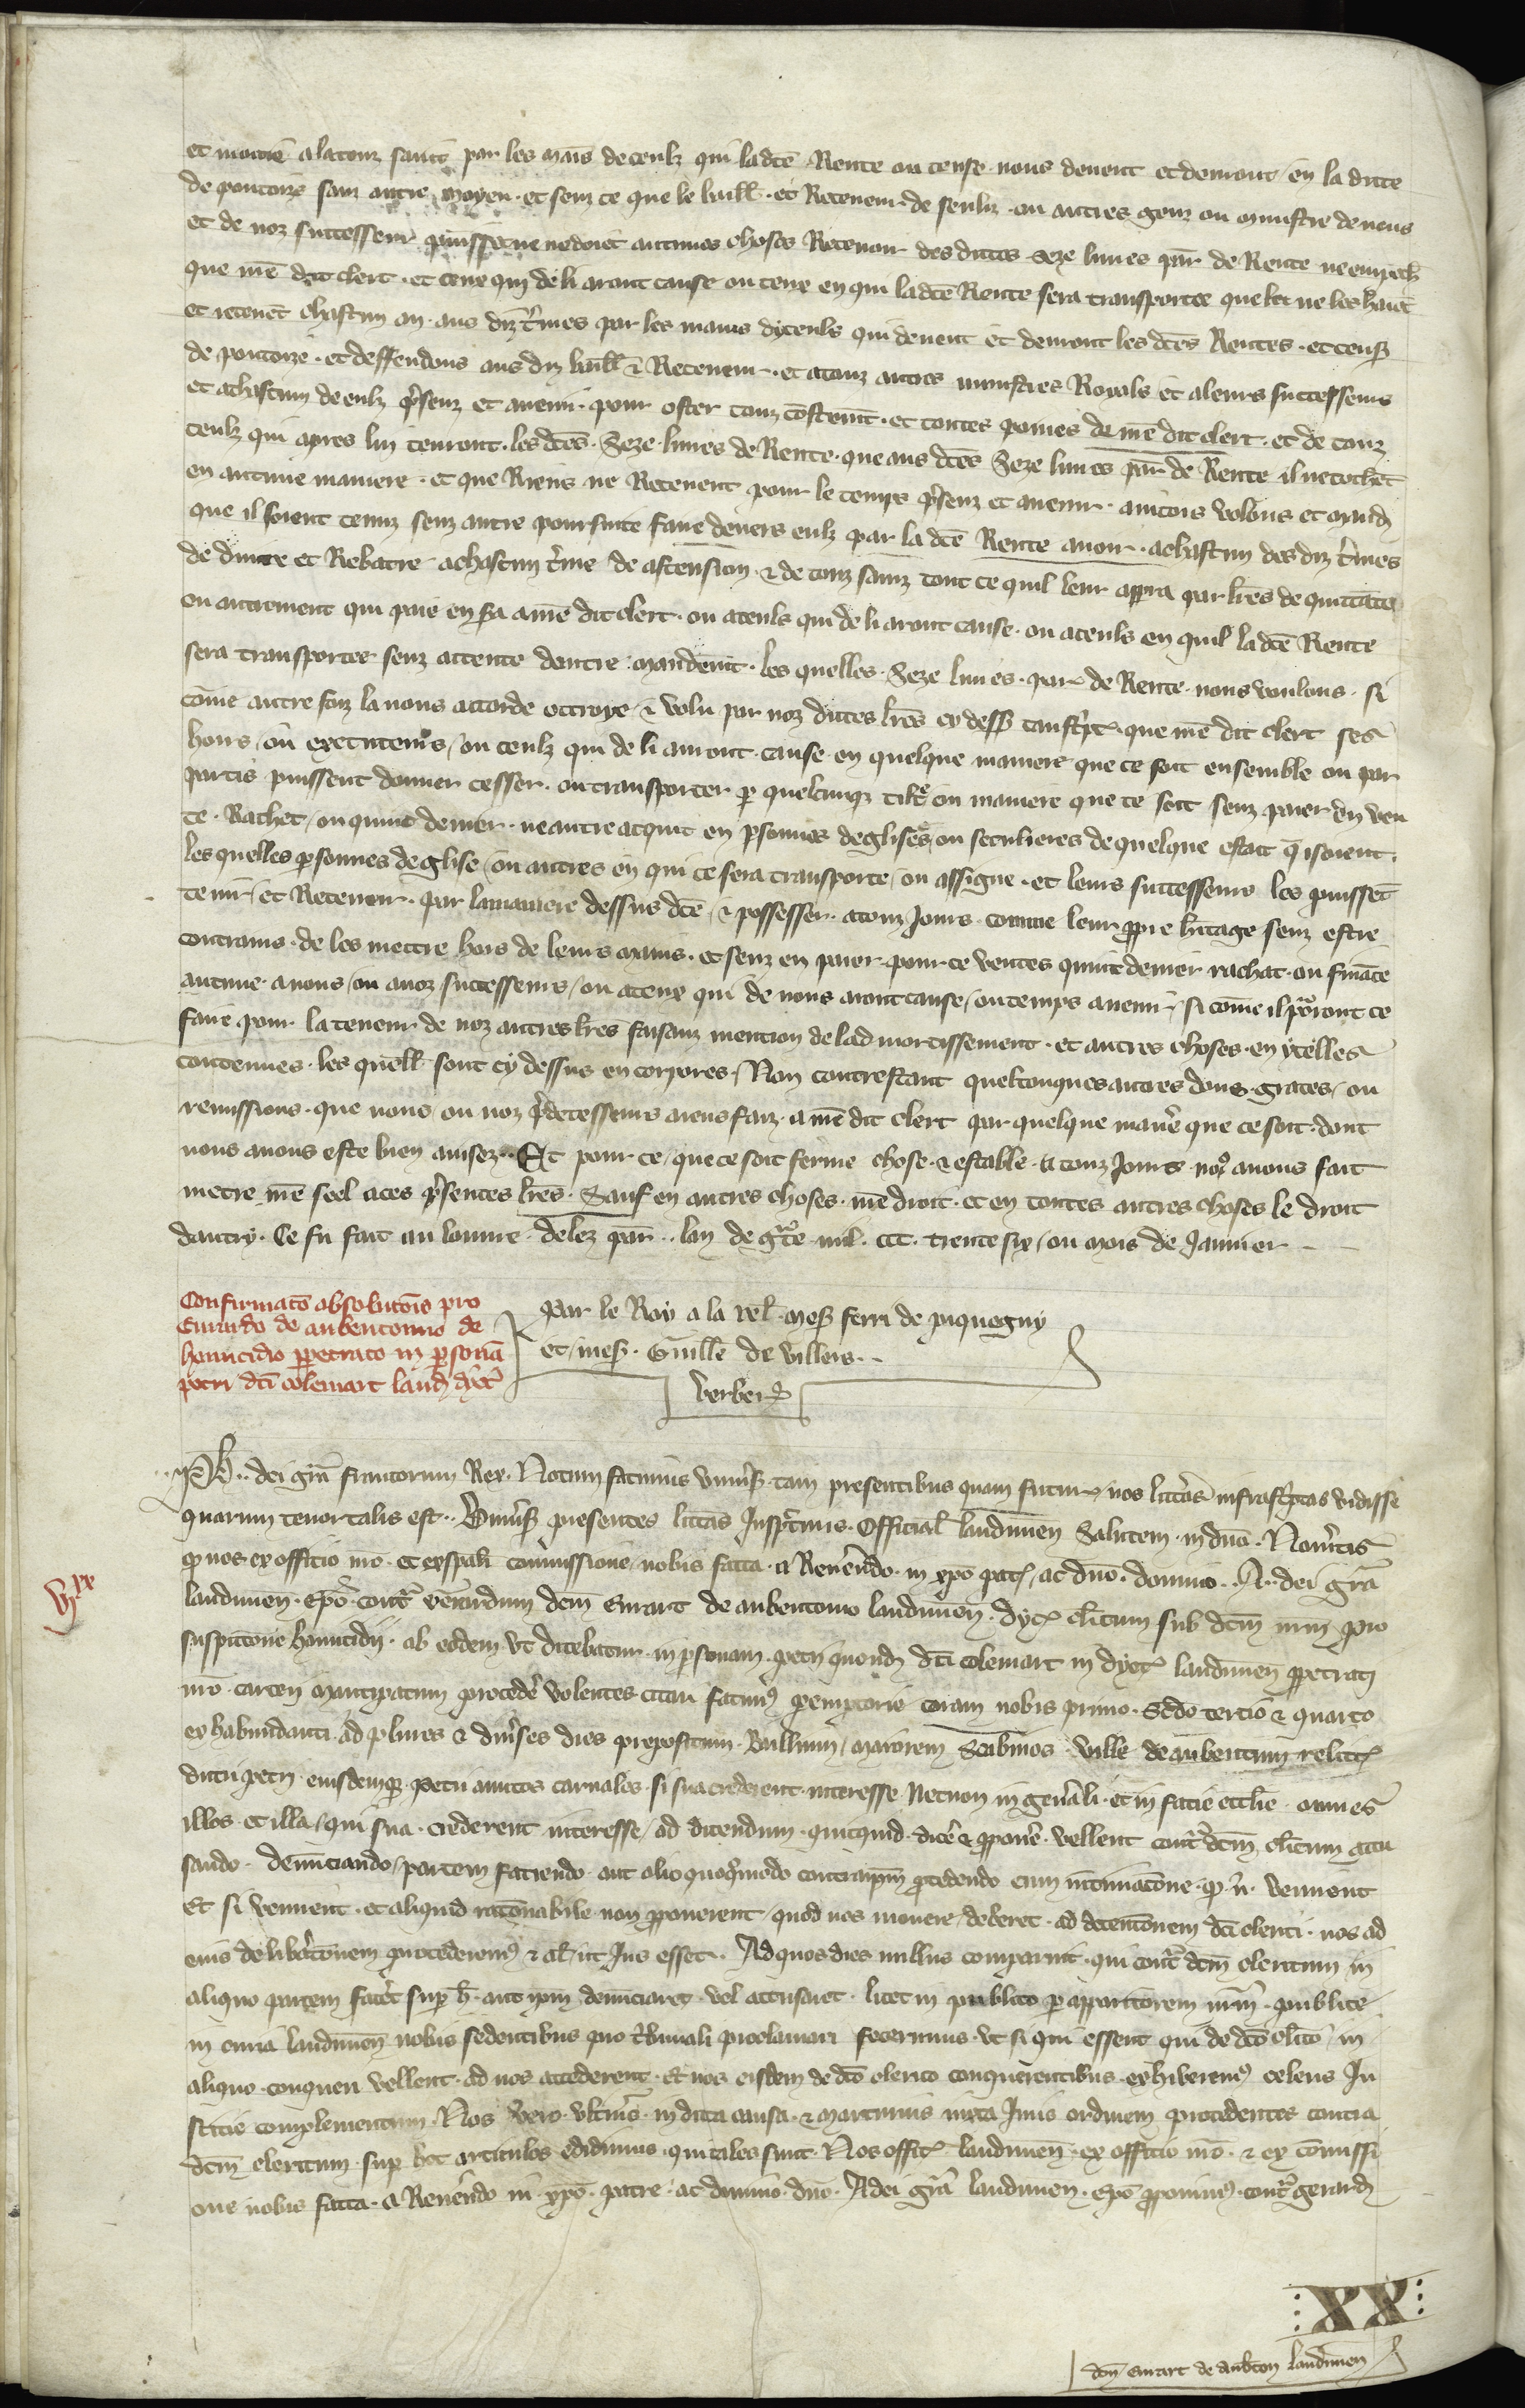 et moitie a la touz sainz par les mains de ceulz qui la dte Rente ou cense nous devent et devront en la dicte
de pontoise sanz autre moyen et senz ce que le baill et Receveur de senliz ou autres genz ou ministre de nous
et de noz successeur puissent ne doiet aucunes choses Retenir des dictes seze livres par de Rente ne empech
que me dit clerc et ceux qui de li aront cause ou ceux en qui la dce Rente sera transportee que le ne les haiet
et recevet chascun an aus diz tmes par les mains dyceuls qui devent et devront les dces Rentes et cens
de pontoize et deffendons aus diz baill & Receveur et a touz autres ministres Royals et a leurs successeurs
et a chascun de eulz psenz et avenir pour oster touz costenit et toutes poines de me dit clerc et de touz
ceulz qui apres lui tenront les dces Seze livres de Rente que aus dces Seze livres par de Rente il ne tochet
en aucune maniere et que Riens ne Retenent pour le temps psenz et avenir aincois volons et mand
que il soient tenuz senz autre poursuite faire devers eulz par la dce Rente avoir a chascun des diz tmes
de duire et Rebatre a chascun tme de ascension & de touz sainz tout ce quil leur appra par lres de quittace
ou autrement qui paie en sera a me dit clerc ou a ceuls qui de li aront cause ou a ceuls en quil la dce Rente
sera transportee senz attente dautre mandemt les quelles Seze livres par de Rente nous voulons si
come autre foiz la nous accorde ottroye & volu par noz dictes lres cy dess tanscpt que me dit clerc ses
hoirs ou executeurs ou ceulz qui de li auront cause en quelque maniere que ce soit ensemble ou par
partis puissent donner cesser ou transporter p quelcunq titre ou maniere que ce soit senz paier en ven
te Rachet ou quint denier ne autre acquit en psonnes deglises ou seculieres de quelque estat q il soient
les quelles psonnes deglise ou autres en qui ce sera transporte ou assigne et leurs successeurs les puisset
tenir et Recevoir par la maniere dessus dce & possesser a touz Jours comme leur ppre hitage senz estre
contrains de les mettre hors de leurs mains et senz en paier pour ce ventes quint denier rachat ou finace
aucune a nous ou a noz successeurs ou a ceux qui de nous aront cause ou temps avenir si come il porront ce
faire pour la teneur de noz autres lres faisanz mention de lad mortissement et autres choses en ycelles
contenues les quell sont cy dessus en corpores Non contrestant quelconques autres dons graces ou
remissions que nous ou noz pdecesseurs aiens faiz a me dit clerc par quelque manie que ce soit dont
nous avons este bien avisez Et pour ce que ce soit ferme chose & estable a touz Jours nos avons fait
metre me seel a ces psentes lres Sauf en autres choses me droit et en toutes autres choses le droit
dautry Ce fu fait au louvre delez par lan de grace mil ccc trente six ou mois de Janvier
Confirmato absolutois pro
Evrardo de aubentonno de
homicidio ppetrato in psona
petri dci colemart laud dyoc
Par le Roy a la rel mess ferri de piquegny
et mess Guille de villers
berber
vjxx
Ph dei gra francorum Rex Notum facimus univsis tam presentibus quam futuris nos litteras infrascptas vidisse
quarum tenor talis est Univsis presentes litteras Inspcuris Official laudunen Salutem in dno Noveritis
q nos ex officio nro et ex spali commissione nobis facta a Reverendo in xpo patre ac dno domino A dei gra
laudunen Epo contra verardum dcm Evrart de aubentonno laudunen dyoc clicum sub dcm nrm pro
suspicione homicidij ab eodem ut dicebatur in psonam petri quond dci colemart in dyoc laudunen ppetrati
nro carceri mancipatum procedere volentes citari facimus peremptorie coram nobis primo Scdo tertio & quarto
ex habundanti ad plures & divses dies prepositum Baillivum maiorem Scabinos ville de aubentum relicta
dicti petri eiusdemq petri amicos carnales si sua crederent interesse Necnon in genali et in facie ecclie omnes
illos et illa qui sua crederent interesse ad dicendum quicquid dicere & pponere vellent contra dcm clicum accu
sando denunciando partem faciendo aut alio quoquomodo contra ipm pcedendo cum intimacone q n venirent
Et si venirent et aliquid raconabile non pponerent quod nos movere deberet ad detentonem dci clerici nos ad
eius delibaconem procederemus & al ut Jus esset Ad quos dies nullus comparuit qui contra dcm clericum in
aliquo partem faceret sup h aut ipm denunciaret vel accusaret licet in publico p apparitorem nrm publice
in curia laudunen nobis sedentibus pro tbunali proclamari fecerimus ut si qui essent qui de dco clico in
aliquo conqueri vellent ad nos accederent Et nos eisdem de dco clerico conquerentibus exhiberemus celeris Ju
sticie complementum Nos vero ultius in dicta causa & marturius iuxta Juris ordinem procedentes contra
dcm clericum sup hoc articulos edidimus qui tales sunt Nos offic laudunen ex officio nro & ex comissi
one nobis facta a Reverendo in xpo patre ac domino dno A dei gra laudunen Epo pponimus contra gerard
XX
dcm evrart de aubenton laudunen